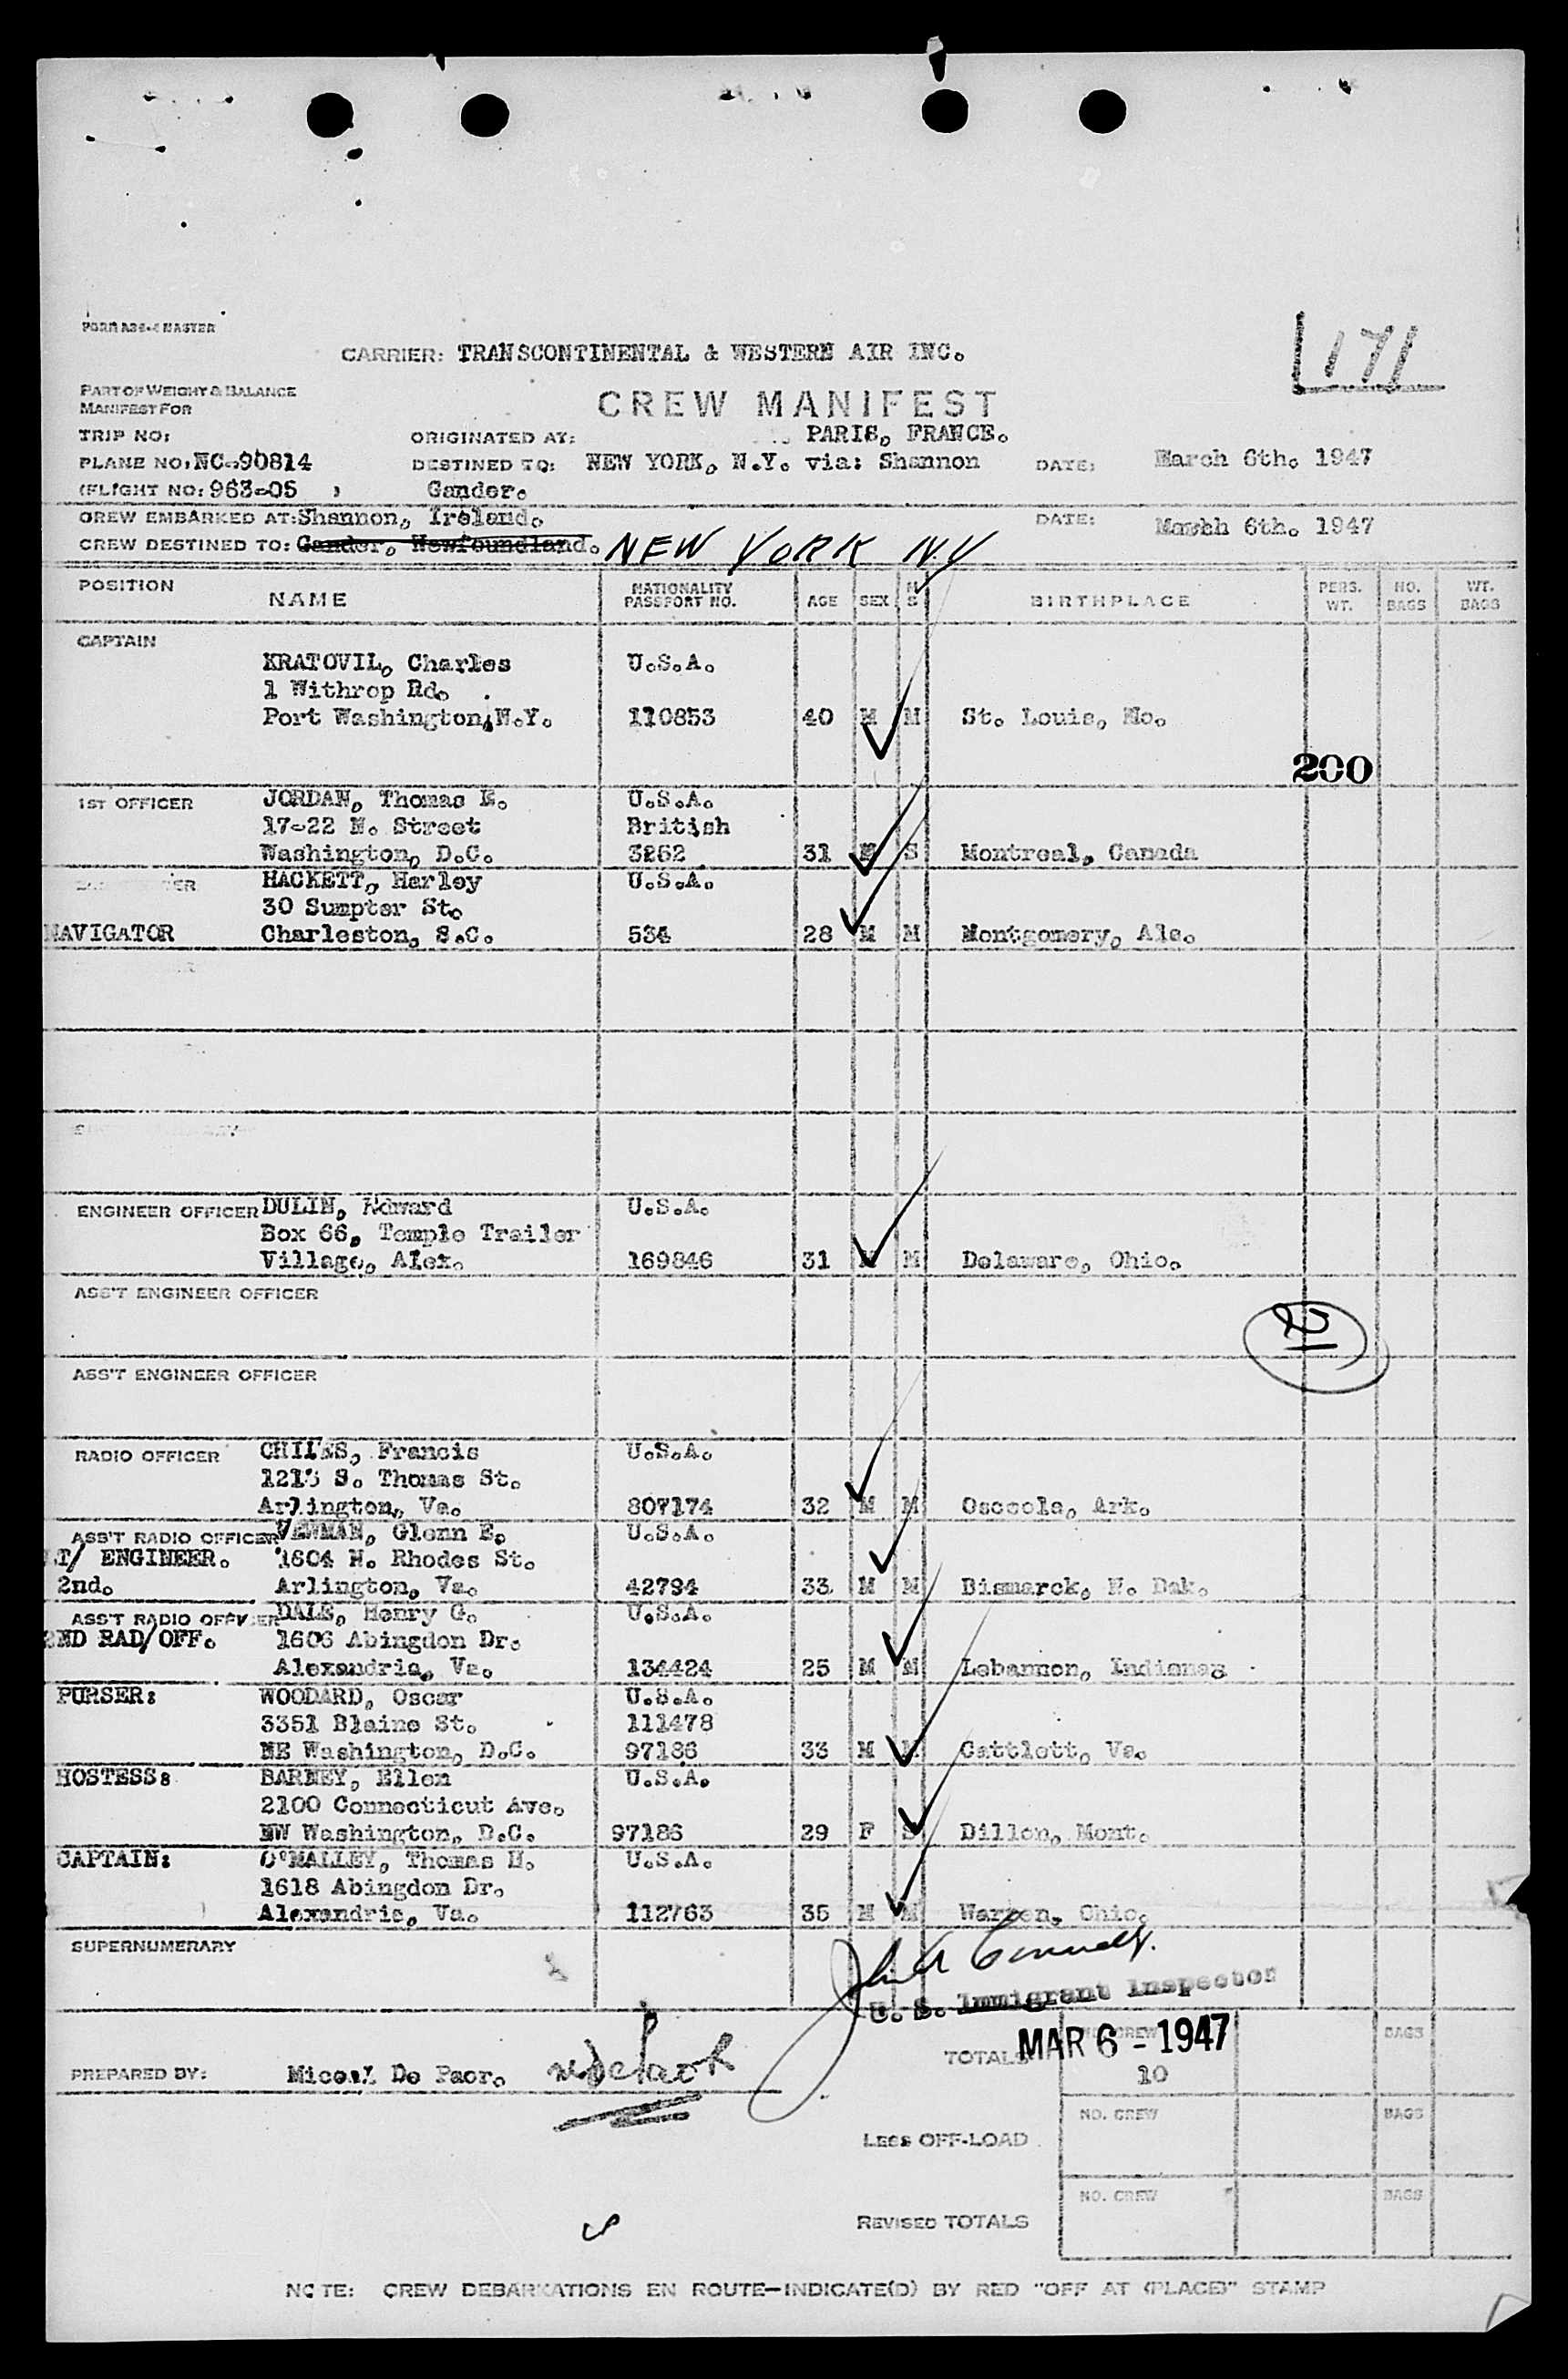 FORM A38-4 MASTER
CARRIER: TRANSCONTINENTAL & WESTERN AIR INC.
171
PART OF WEIGHT & BALANCE
MANIFEST FOR
CREW MANIFEST
TRIP NO:
ORIGINATED AT: PARIS, FRANCE.
PLANE NO: NC-90814 DESTINED TO: NEW YORK, N.Y. via: Shannon DATE: March 6th. 1947
(FLIGHT NO: 963-05 ) Gander.
CREW EMBARKED AT: Shannon, Ireland. DATE: March 6th. 1947
CREW DESTINED TO: Gander, Newfoundland. NEW YORK NY
POSITION NAME NATIONALITY PASSPORT NO. AGE SEX M S BIRTHPLACE PERS. WT. NO. BAGS WT. BAGS
CAPTAIN
KRATOVIL, Charles U.S.A.
1 Withrop Rd.
Port Washington, N.Y. 110853 40 M M St. Louis, Mo.
200
1ST OFFICER JORDAN, Thomas E. U.S.A.
17-22 N. Street British
Washington, D.C. 3262 31 M S Montreal, Canada
HACKETT, Harley U.S.A.
30 Sumpter St.
NAVIGATOR Charleston, S.C. 534 28 M M Montgomery, Ala.
ENGINEER OFFICER DULIN, Edward U.S.A.
Box 66, Temple Trailer
Village, Alex. 169846 31 M M Delaware, Ohio.
ASS'T ENGINEER OFFICER
ASS'T ENGINEER OFFICER
RADIO OFFICER CHILES, Francis U.S.A.
1215 S. Thomas St.
Arlington, Va. 807174 32 M M Osceola, Ark.
ASS'T RADIO OFFICER NEWMAN, Glenn E. U.S.A.
LT/ ENGINEER. 1604 N. Rhodes St.
2nd. Arlington, Va. 42794 33 M M Bismarck, N. Dak.
ASS'T RADIO OFFICER DALE, Henry G. U.S.A.
2ND RAD/OFF. 1606 Abingdon Dr.
Alexandria, Va. 134424 25 M M Lebannon, Indiana
PURSER: WOODARD, Oscar U.S.A.
3351 Blaine St. 111478
NE Washington, D.C. 97186 33 M M Cattlett, Va.
HOSTESS: BARNEY, Ellen U.S.A.
2100 Connecticut Ave.
NW Washington, D.C. 97186 29 F S Dillon, Mont.
CAPTAIN: O'MALLEY, Thomas H. U.S.A.
1618 Abingdon Dr.
Alexandria, Va. 112763 35 M M Warren, Ohio.
SUPERNUMERARY
U. S. Immigrant Inspector
MAR 6 - 1947
TOTALS NO. CREW 10 BAGS
PREPARED BY: Miceal De Paor.
LESS OFF-LOAD NO. CREW BAGS
REVISED TOTALS NO. CREW BAGS
NOTE: CREW DEBARKATIONS EN ROUTE—INDICATE(D) BY RED "OFF AT (PLACE)" STAMP